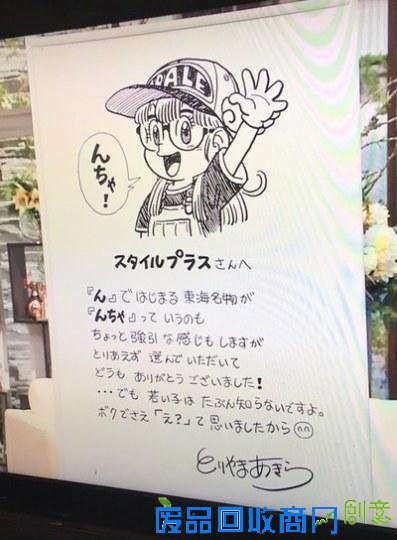 DALE
んちゃ!
スタイルプラスさんへ
『ん』ではじまる東海名物が
『んちゃ』っていうのも
ちょっと強引な感じもしますが
とりあえず選んでいただいて
どうもありがとうございました!
・・・でも若い子はたぶん知らないですよ。
ボクでさえ「え?」て思いましたから
とりやまあきら
创意
废品回收商网